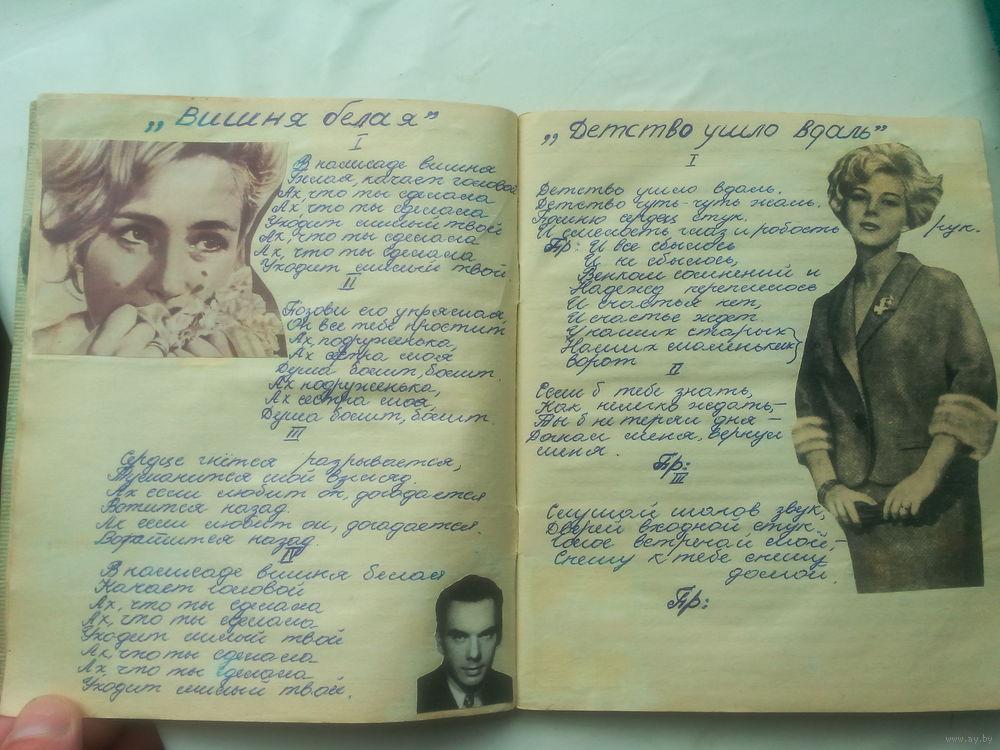 „Вишня белая"
I
В палисаде вишня
Белая, качает головой
Ах, что ты сделала
Ах, что ты сделала
Уходит милый твой
Ах, что ты сделала
Ах, что ты сделала
Уходит милый твой
II
Позови его упрямая
Он все тебе простит
Ах, подруженька,
Ах сестра моя
Душа болит, болит.
Ах подруженька,
Ах сестра моя,
Душа болит, болит.
III
Сердце гнётся разрывается,
Туманится мой взгляд.
Ах если любит он, догадается
Вотится назад.
Ах если любит он, догадается.
Воротится назад.
IV
В палисаде вишня белая
Качает головой
Ах, что ты сделала
Ах, что ты сделала
Уходит милый твой
Ах, что ты сделала
Ах, что ты сделала
Уходит милый твой.
„Детство ушло вдаль"
I
Детство ушло вдаль.
Детство чуть-чуть жаль.
сердец стук.
И смелость глаз и робость рук.
Пр: И все сбылось
И не сбылось,
Венком сомнений и
Надежд переплелось
И счастья нет,
И счастье ждет
У наших старых
Наших маленьких
ворот
II
Если б тебе знать,
Как нелегко ждать,-
Ты б не терял дня –
Догнал меня, вернул
меня.
Пр:
III
Слушай шагов звук,
Дверей входной стук.
Голос встречай мой,-
Спешу к тебе спешу
домой.
Пр:
www.ay.by